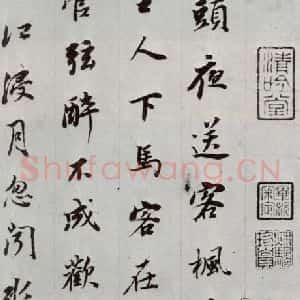 清吟堂
頭夜送客楓
主人下馬客在
管弦醉不成歡
江浸月忽聞水
Shufawang.CN